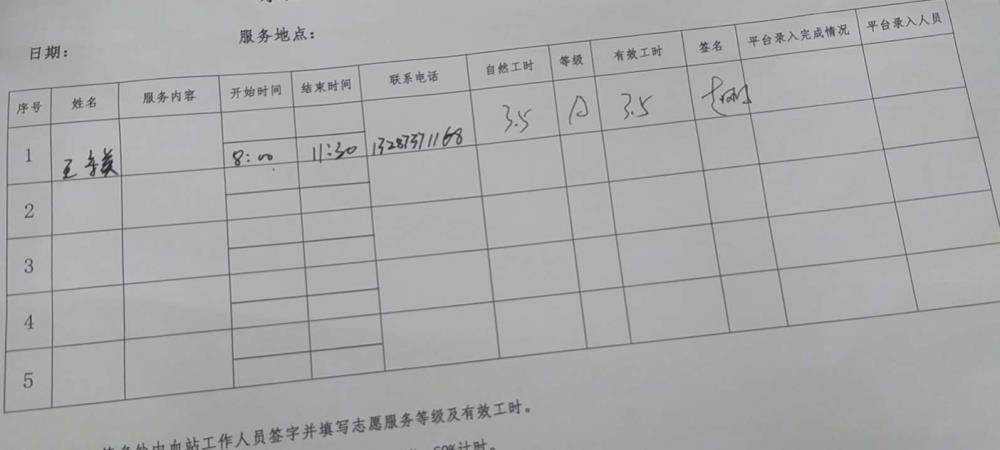 日期：
服务地点：
序号 姓名 服务内容 开始时间 结束时间 联系电话 自然工时 等级 有效工时 签名 平台录入完成情况 平台录入人员
1 王 8:00 11:30 13287371168 3.5 A 3.5
2
3
4
5
由血站工作人员签字并填写志愿服务等级及有效工时。
60%计时。